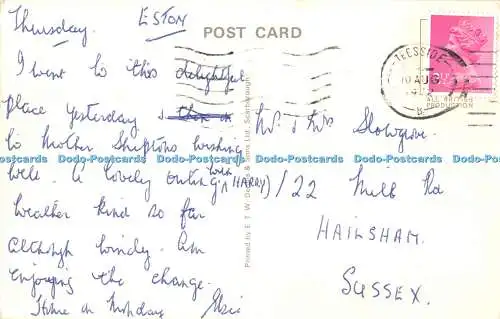 Thursday. ESTON
POST CARD
TEESSIDE
10 AUG
ALL BRITISH
PRODUCTION
I went to this delightful
place yesterday &
to Mother Shiptons wishing
well. A lovely outing (with HARRY)
weather kind so far
although windy. Am
enjoying the change.
Home on Monday Elsie
Printed by E. T. W. Dennis & Sons Ltd., Scarborough
Mr & Mrs Slowgrove
122 Mill Rd
HAILSHAM.
SUSSEX.
Dodo-Postcards Dodo-Postcards Dodo-Postcards Dodo-Postcards Dodo-Postcards Dodo-Postcards